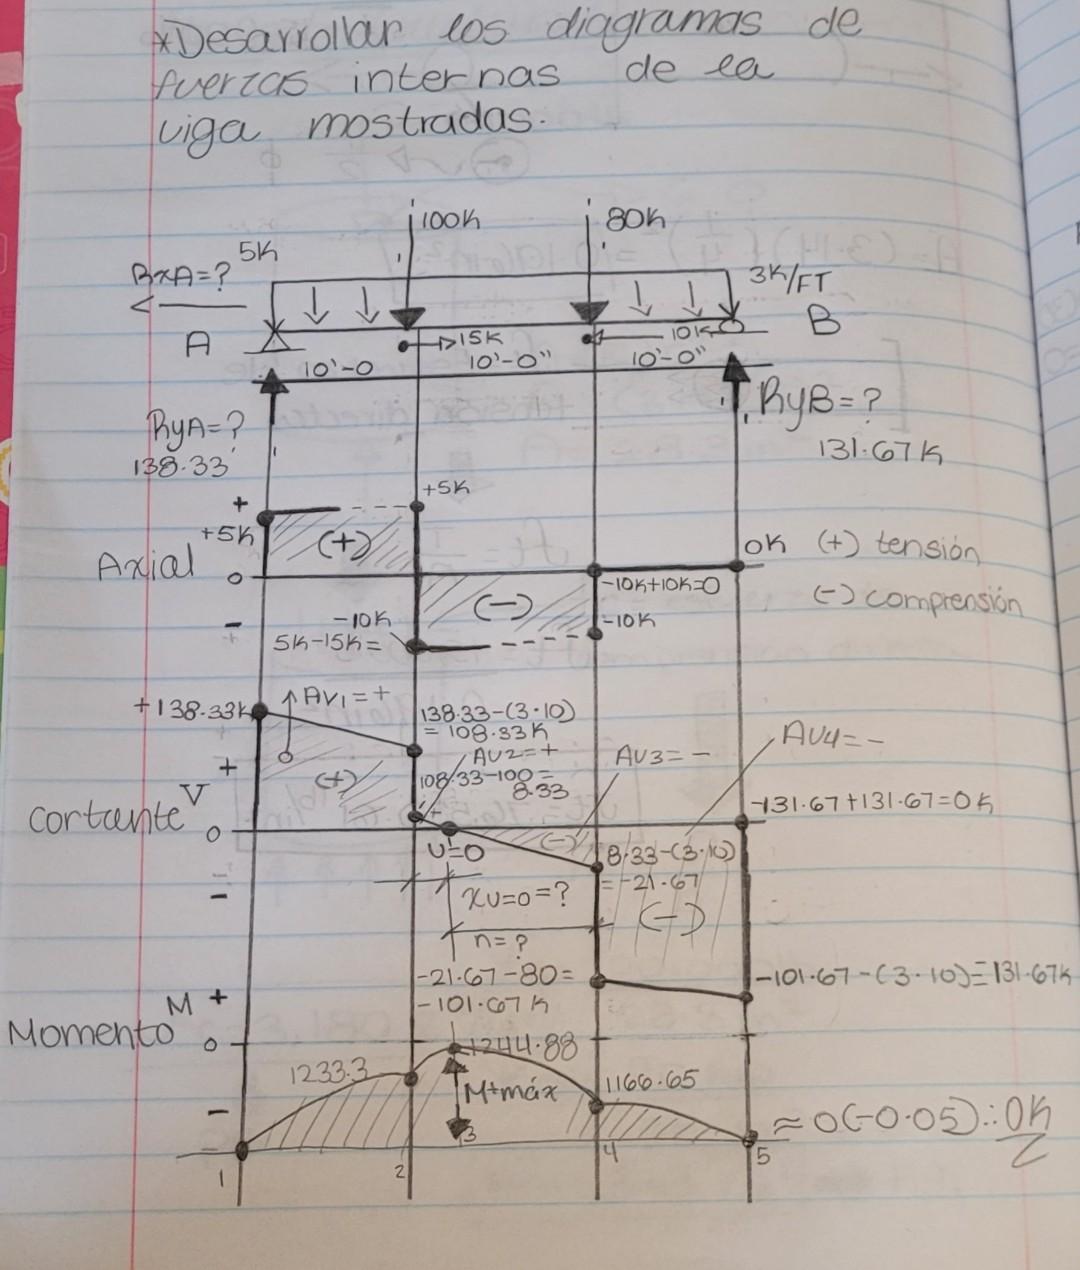 *Desarrollar los diagramas de
fuerzas internas de la
viga mostradas.
100K
80K
5K
BxA=?
3K/FT
A
B
15K
10K
10'-0
10'-0"
10'-0"
RyA=?
138.33
RyB=?
131.67K
+5K
+
+5K
(+)
Axial
0
0K
(+) tensión
-10K+10K=0
(-)
(-) comprensión
-
-10K
-10K
5K-15K=
+138.33K
AV1=+
138.33-(3·10)
=108.33K
AV2=+
AV3=-
AV4=-
+
(+)
108.33-100=
8.33
V
cortante
0
+
-131.67+131.67=0K
(-)
U=0
8.33-(3·10)
=-21.67
-
XU=0=?
(-)
n=?
-21.67-80=
-101.67K
-101.67-(3·10)=131.67K
M +
Momento
0
1244.88
1233.3
M+máx
1166.65
-
3
≈0(-0.05)∴OK
1
2
4
5